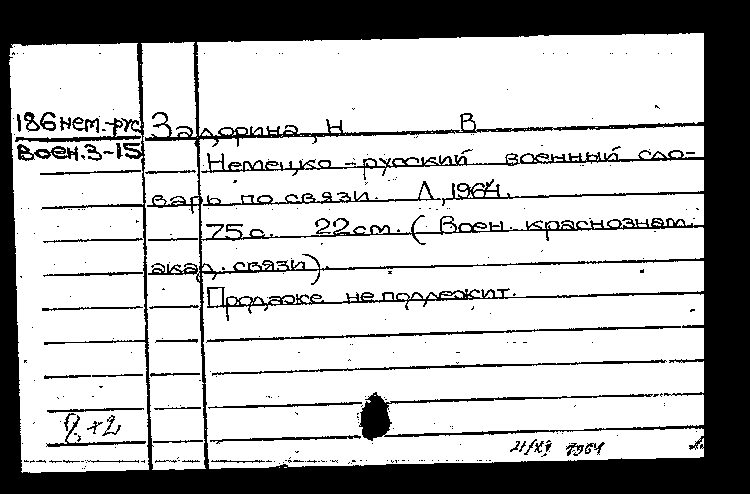 186 нем.-рус
Воен.З-15
Задорина, Н В
Немецко-русский военный сло-
варь по связи. Л, 1964.
75 с. 22 см. (Воен. краснознам.
акад. связи).
Продаже не подлежит.
8+2